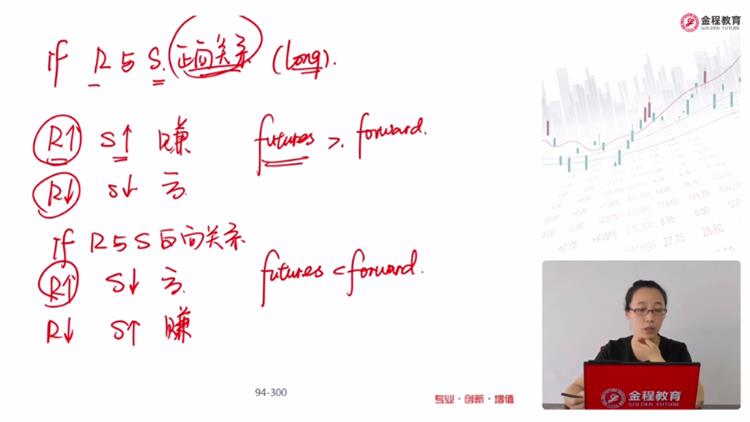 if R与S 正向关系 (long).
R↑ S↑ 赚 futures > forward.
R↓ S↓ 亏.
if R与S反向关系
R↑ S↓ 亏. futures < forward.
R↓ S↑ 赚
94-300
专业·创新·增值
金程教育
GOLDEN FUTURE
金程教育
GOLDEN FUTURE